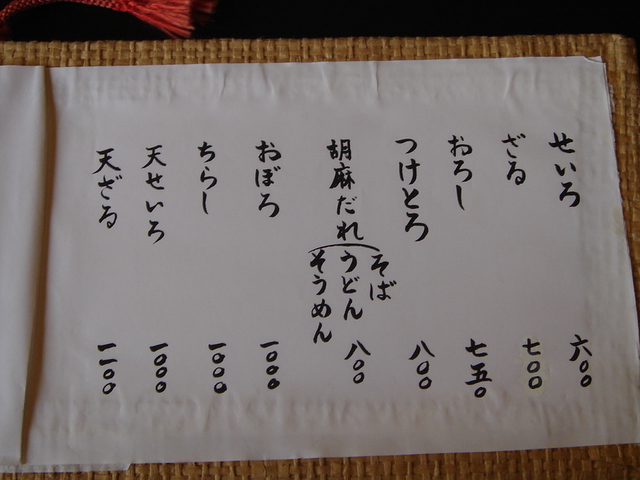 せいろ 六〇〇
ざる 七〇〇
おろし 七五〇
つけとろ 八〇〇
胡麻だれ そば うどん そうめん 八〇〇
おぼろ 一〇〇〇
ちらし 一〇〇〇
天せいろ 一〇〇〇
天ざる 一一〇〇